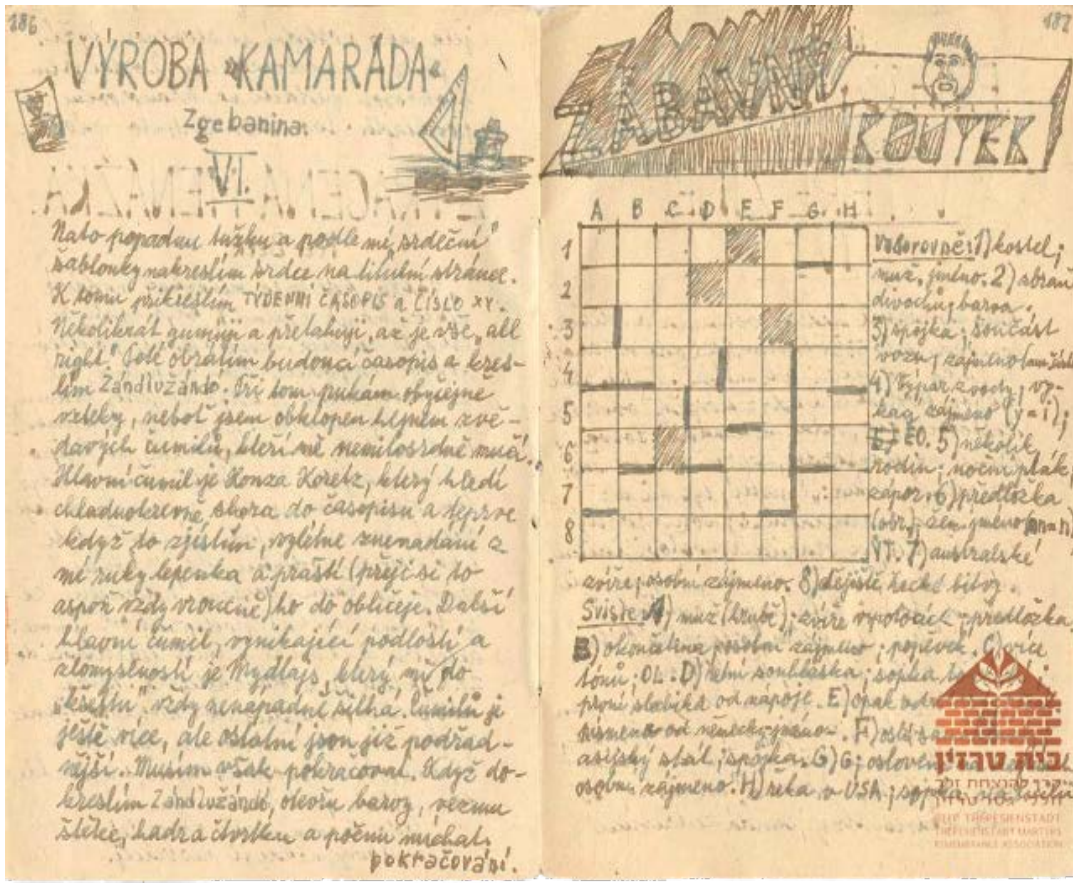 186
VÝROBA "KAMARÁDA"
Zgebanina:
VI.
Nato popadnu tužku a podle mé "srdeční"
šablonky nakreslím srdce na titulní stránce.
K tomu přikreslím TÝDENNÍ ČASOPIS a ČÍSLO XY.
Několikrát gumuji a přetahuji, až je vše "all
right". Poté obrátím budoucí časopis a kres-
lím Zándlvžándo. Při tom prskám obyčejně
vzteky, neboť jsem obklopen zvě-
davých čumilů, kteří mě nemilosrdně mučí.
Hlavní čumil je Honza Koretz, který hledí
chladnokrevně shora do časopisu a teprve
když to zjistím, vylétne znenadání z
mé ruky lepenka a praští (přeji si to
aspoň vždy vroucně) ho do obličeje. Další
hlavní čumil, vynikající podlostí a
zlomyslností je Mydlajs, který mi do
"kšeftu" vždy nenápadně šilhá. Čumilů je
ještě více, ale ostatní jsou již podřad-
nější. Musím však pokračovat. Když do-
kreslím Zándlvžándo, otevřu barvy, vezmu
štětce, hadr a čtvrtku a počnu míchat.
pokračování.
187
ZÁBAVNÝ
KOUTEK
A B C D E F G H
1
2
3
4
5
6
7
8
Vodorovně: 1) kostel;
muž. jméno. 2) zbraň
divochů; barva.
3) spojka; součást
vozu; zájmeno
4) Výpar z vody; vy-
kag zájmeno (y=i);
ÉO. 5) několik
rodin; noční pták;
zápor. 6) předložka
(obr.); žen. jméno (nn=n)
VT. 7) australské
zvíře; osobní zájmeno. 8) dějiště řecké bitvy.
Svisle: A) muž (hrubě); zvíře v potocích; předložka
B) okončetina; osobní zájmeno; popěvek. C) více
tónů; Oh. D) retní souhláska; sopka
první slabika od nápoje. E) opak
písmeno od německ. jméno. F)
asijský stát; spojka. G) G;
osobní zájmeno. H) řeka v USA; sopka
בית טרזין
BEIT THERESIENSTADT
THERESIENSTADT MARTYRS
REMEMBRANCE ASSOCIATION